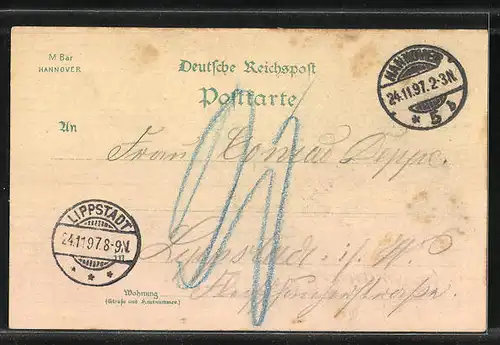 M Bar
HANNOVER.
Deutsche Reichspost
Postkarte
HANNOVER
24.11.97. 2-3N.
* 5 b
An
Frau Conrad Deppe.
LIPPSTADT
24.11 97. 8-9N.
* * *
Lippstadt i. W.
Wohnung
(Straße und Hausnummer)